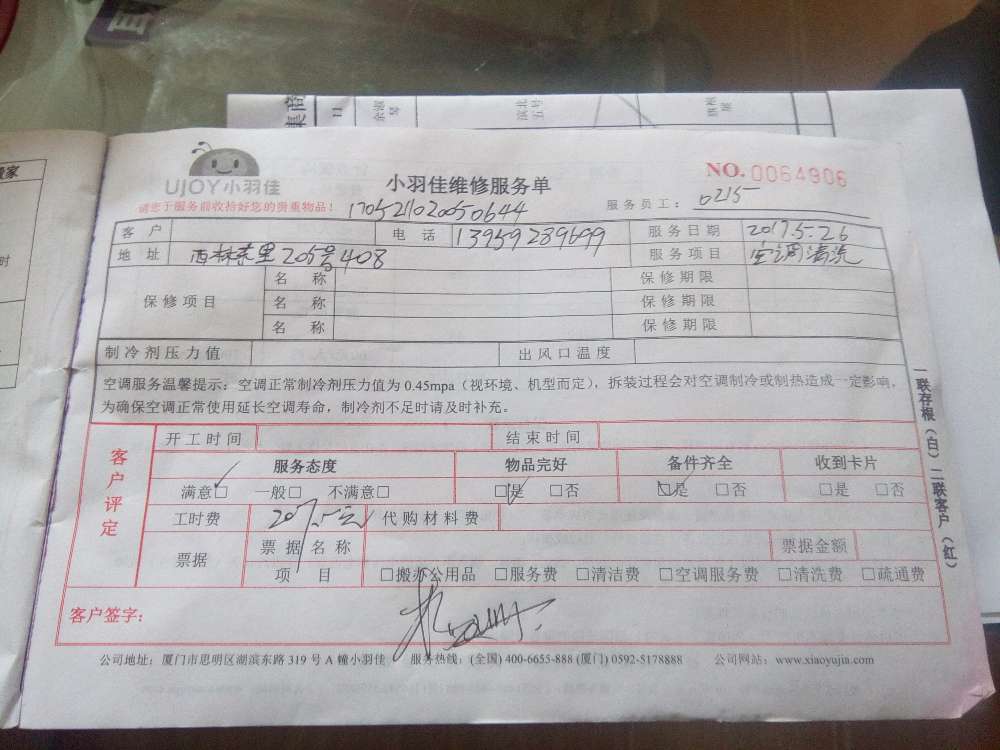 集商
11
滨北
五号
UJOY小羽佳
小羽佳维修服务单
NO.0064906
请您于服务前收拾好您的贵重物品！
170521020050644
服务员工： 0215
客 户
电 话 13959289699
服务日期 2017.5.26
地 址 西林东里205号408
服务项目 空调清洗
保修项目
名 称 保修期限
名 称 保修期限
名 称 保修期限
制冷剂压力值 出风口温度
空调服务温馨提示：空调正常制冷剂压力值为 0.45mpa（视环境、机型而定），拆装过程会对空调制冷或制热造成一定影响，
为确保空调正常使用延长空调寿命，制冷剂不足时请及时补充。
客户评定
开工时间 结束时间
服务态度 物品完好 备件齐全 收到卡片
满意□ 一般□ 不满意□ □是 □否 □是 □否 □是 □否
工时费 207.5元 代购材料费
票据 票据名称 票据金额
项 目 □搬办公用品 □服务费 □清洁费 □空调服务费 □清洗费 □疏通费
客户签字：
一联存根（白）二联客户（红）
公司地址：厦门市思明区湖滨东路 319 号 A 幢小羽佳 服务热线：(全国) 400-6655-888 (厦门) 0592-5178888 公司网站：www.xiaoyujia.com